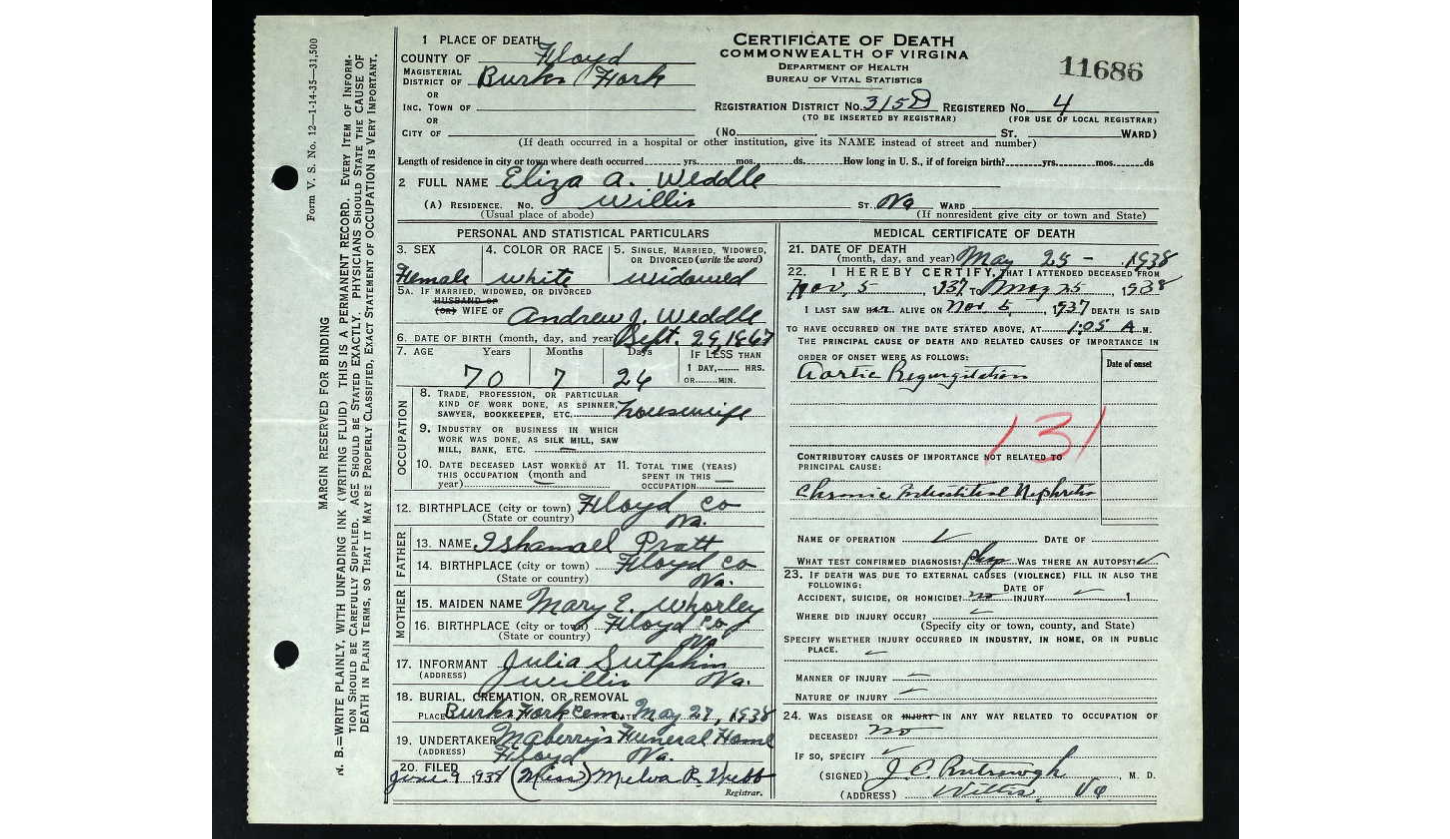 Form V. S. No. 12—1-14-35—31,500
MARGIN RESERVED FOR BINDING
N. B.—WRITE PLAINLY, WITH UNFADING INK (WRITING FLUID) THIS IS A PERMANENT RECORD. EVERY ITEM OF INFORM-
TION SHOULD BE CAREFULLY SUPPLIED. AGE SHOULD BE STATED EXACTLY. PHYSICIANS SHOULD STATE THE CAUSE OF
DEATH IN PLAIN TERMS, SO THAT IT MAY BE PROPERLY CLASSIFIED, EXACT STATEMENT OF OCCUPATION IS VERY IMPORTANT.
CERTIFICATE OF DEATH
COMMONWEALTH OF VIRGINIA
DEPARTMENT OF HEALTH
BUREAU OF VITAL STATISTICS
11686
1 PLACE OF DEATH
COUNTY OF Floyd
MAGISTERIAL DISTRICT OF Burks Fork
OR
INC. TOWN OF
OR
CITY OF
REGISTRATION DISTRICT NO. 315D REGISTERED NO. 4
(TO BE INSERTED BY REGISTRAR) (FOR USE OF LOCAL REGISTRAR)
(NO. ST. WARD)
(If death occurred in a hospital or other institution, give its NAME instead of street and number)
Length of residence in city or town where death occurred yrs. mos. ds. How long in U. S., if of foreign birth? yrs. mos. ds
2 FULL NAME Eliza A. Weddle
(A) RESIDENCE. NO. Willis ST. Va WARD
(Usual place of abode) (If nonresident give city or town and State)
PERSONAL AND STATISTICAL PARTICULARS
3. SEX Female
4. COLOR OR RACE white
5. SINGLE, MARRIED, WIDOWED, OR DIVORCED (write the word) widowed
5A. IF MARRIED, WIDOWED, OR DIVORCED
HUSBAND OF
(OR) WIFE OF Andrew J. Weddle
6. DATE OF BIRTH (month, day, and year) Sept. 29, 1867
7. AGE Years Months Days IF LESS THAN
1 DAY, HRS.
OR MIN.
70 7 26
OCCUPATION
8. TRADE, PROFESSION, OR PARTICULAR
KIND OF WORK DONE, AS SPINNER,
SAWYER, BOOKKEEPER, ETC. housewife
9. INDUSTRY OR BUSINESS IN WHICH
WORK WAS DONE, AS SILK MILL, SAW
MILL, BANK, ETC. —
10. DATE DECEASED LAST WORKED AT
THIS OCCUPATION (month and
year) —
11. TOTAL TIME (YEARS)
SPENT IN THIS —
OCCUPATION
12. BIRTHPLACE (city or town) Floyd Co
(State or country) Va.
FATHER
13. NAME Ishamaell Pratt
14. BIRTHPLACE (city or town) Floyd Co
(State or country) Va.
MOTHER
15. MAIDEN NAME Mary E. Whorley
16. BIRTHPLACE (city or town) Floyd Co
(State or country) Va
17. INFORMANT Julia Sutphin
(ADDRESS) Willis Va.
18. BURIAL, CREMATION, OR REMOVAL
PLACE Burks Fork Cem DATE May 27, 1938
19. UNDERTAKER Maberry's Funeral Home
(ADDRESS) Floyd Va.
20. FILED June 9 1938 (Miss) Melva R. Webb
Registrar.
MEDICAL CERTIFICATE OF DEATH
21. DATE OF DEATH
(month, day, and year) May 25 - 1938
22. I HEREBY CERTIFY, THAT I ATTENDED DECEASED FROM
Nov, 5, 1937 TO May 25, 1938
I LAST SAW her ALIVE ON Nov 5, 1937 DEATH IS SAID
TO HAVE OCCURRED ON THE DATE STATED ABOVE, AT 1:05 A M.
THE PRINCIPAL CAUSE OF DEATH AND RELATED CAUSES OF IMPORTANCE IN
ORDER OF ONSET WERE AS FOLLOWS:
Date of onset
Aortic Regurgitation
131
CONTRIBUTORY CAUSES OF IMPORTANCE NOT RELATED TO
PRINCIPAL CAUSE:
Chronic Interstitial Nephritis
NAME OF OPERATION DATE OF
WHAT TEST CONFIRMED DIAGNOSIS? WAS THERE AN AUTOPSY?
23. IF DEATH WAS DUE TO EXTERNAL CAUSES (VIOLENCE) FILL IN ALSO THE
FOLLOWING:
ACCIDENT, SUICIDE, OR HOMICIDE? no DATE OF INJURY 1
WHERE DID INJURY OCCUR?
(Specify city or town, county, and State)
SPECIFY WHETHER INJURY OCCURRED IN INDUSTRY, IN HOME, OR IN PUBLIC
PLACE.
MANNER OF INJURY
NATURE OF INJURY
24. WAS DISEASE OR INJURY IN ANY WAY RELATED TO OCCUPATION OF
DECEASED? no
IF SO, SPECIFY
(SIGNED) J. C. , M. D.
(ADDRESS) Willis, Va